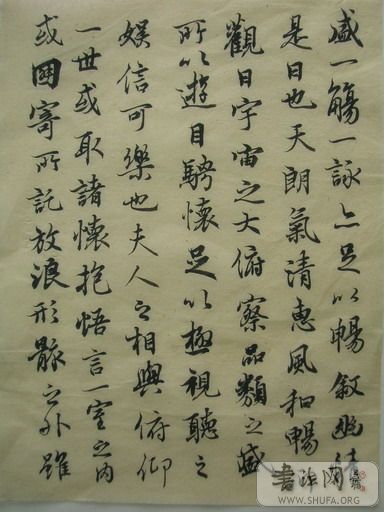 盛一觴一詠亦足以暢敘幽情
是日也天朗氣清惠風和暢
觀日宇宙之大俯察品類之盛
所以遊目騁懷足以極視聽之
娛信可樂也夫人之相與俯仰
一世或取諸懷抱悟言一室之内
或因寄所託放浪形骸之外雖
书法网
WWW.SHUFA.ORG